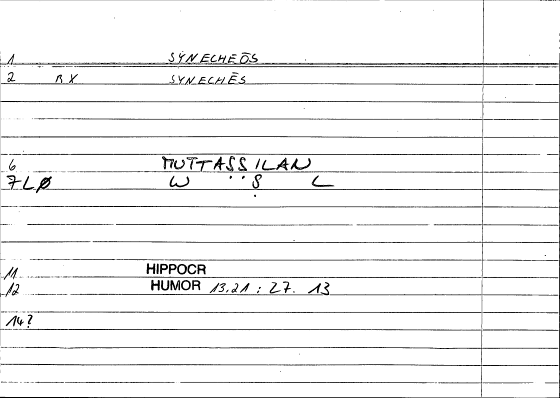 1 SYNECHEŌS
2 RX SYNECHĒS
6 MUTTASSILAN
7LØ W ¨ Ṣ L
11 HIPPOCR
12 HUMOR 13,21 : 27. 13
14?